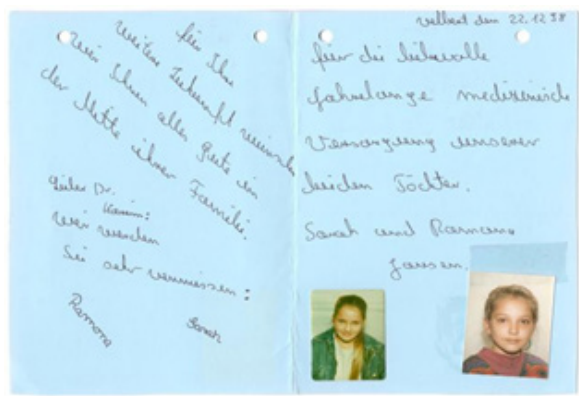 für Ihre
weitere Zukunft wünschen
wir Ihnen alles Gute in
der Mitte ihrer Familie.
Lieber Dr.
Karim:
wir werden
Sie sehr vermissen:
Ramona
Sarah
Velbert den 22.12.98
für die liebevolle
jahrelange medizinische
Versorgung unserer
beiden Töchter.
Sarah und Ramona
Jansen.